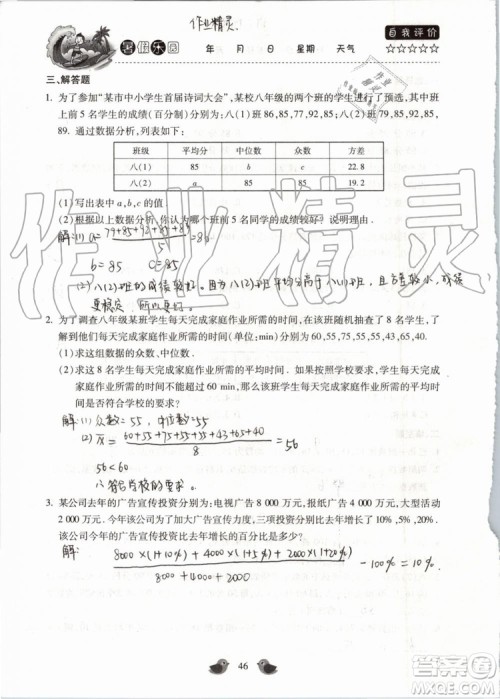 作业精灵
暑假乐园
年 月 日 星期 天气
自我评价
☆☆☆☆☆
三、解答题
1. 为了参加“某市中小学生首届诗词大会”,某校八年级的两个班的学生进行了预选,其中班
上前5名学生的成绩(百分制)分别为:八(1)班86,85,77,92,85;八(2)班79,85,92,85,
89. 通过数据分析,列表如下:
班级 平均分 中位数 众数 方差
八(1) 85 b c 22.8
八(2) a 85 85 19.2
(1)写出表中a,b,c的值
(2)根据以上数据分析,你认为哪个班前5名同学的成绩较好?说明理由.
解:(1) a=(79+85+92+85+89)/5=86
b=85 c=85
(2)八(2)班的成绩较好。因为八(2)班平均分高于八(1)班,且方差较小,成绩
更稳定,所以成绩更好。
2. 为了调查八年级某班学生每天完成家庭作业所需的时间,在该班随机抽查了8名学生,了
解到他们每天完成家庭作业所需的时间(单位:min)分别为:60,55,75,55,55,43,65,40.
(1)求这组数据的众数、中位数.
(2)求这8名学生每天完成家庭作业所需的平均时间;如果按照学校要求,学生每天完成
家庭作业所需的平均时间不能超过60 min,那么该班学生每天完成家庭作业的平均时
间是否符合学校的要求?
解:(1)众数=55,中位数=55
(2) x̄=(60+55+75+55+55+43+65+40)/8=56
56<60
∴符合学校的要求。
3. 某公司去年的广告宣传投资分别为:电视广告8 000万元,报纸广告4 000万元,大型活动
2 000万元. 今年该公司为了加大广告宣传力度,三项投资分别比去年增长了10%,5%,20%. 求
该公司今年的广告宣传投资比去年增长的百分比是多少?
解: (8000×(1+10%)+4000×(1+5%)+2000×(1+20%))/(8000+4000+2000) -100%=10%
46
答案圈
MXQE.COM